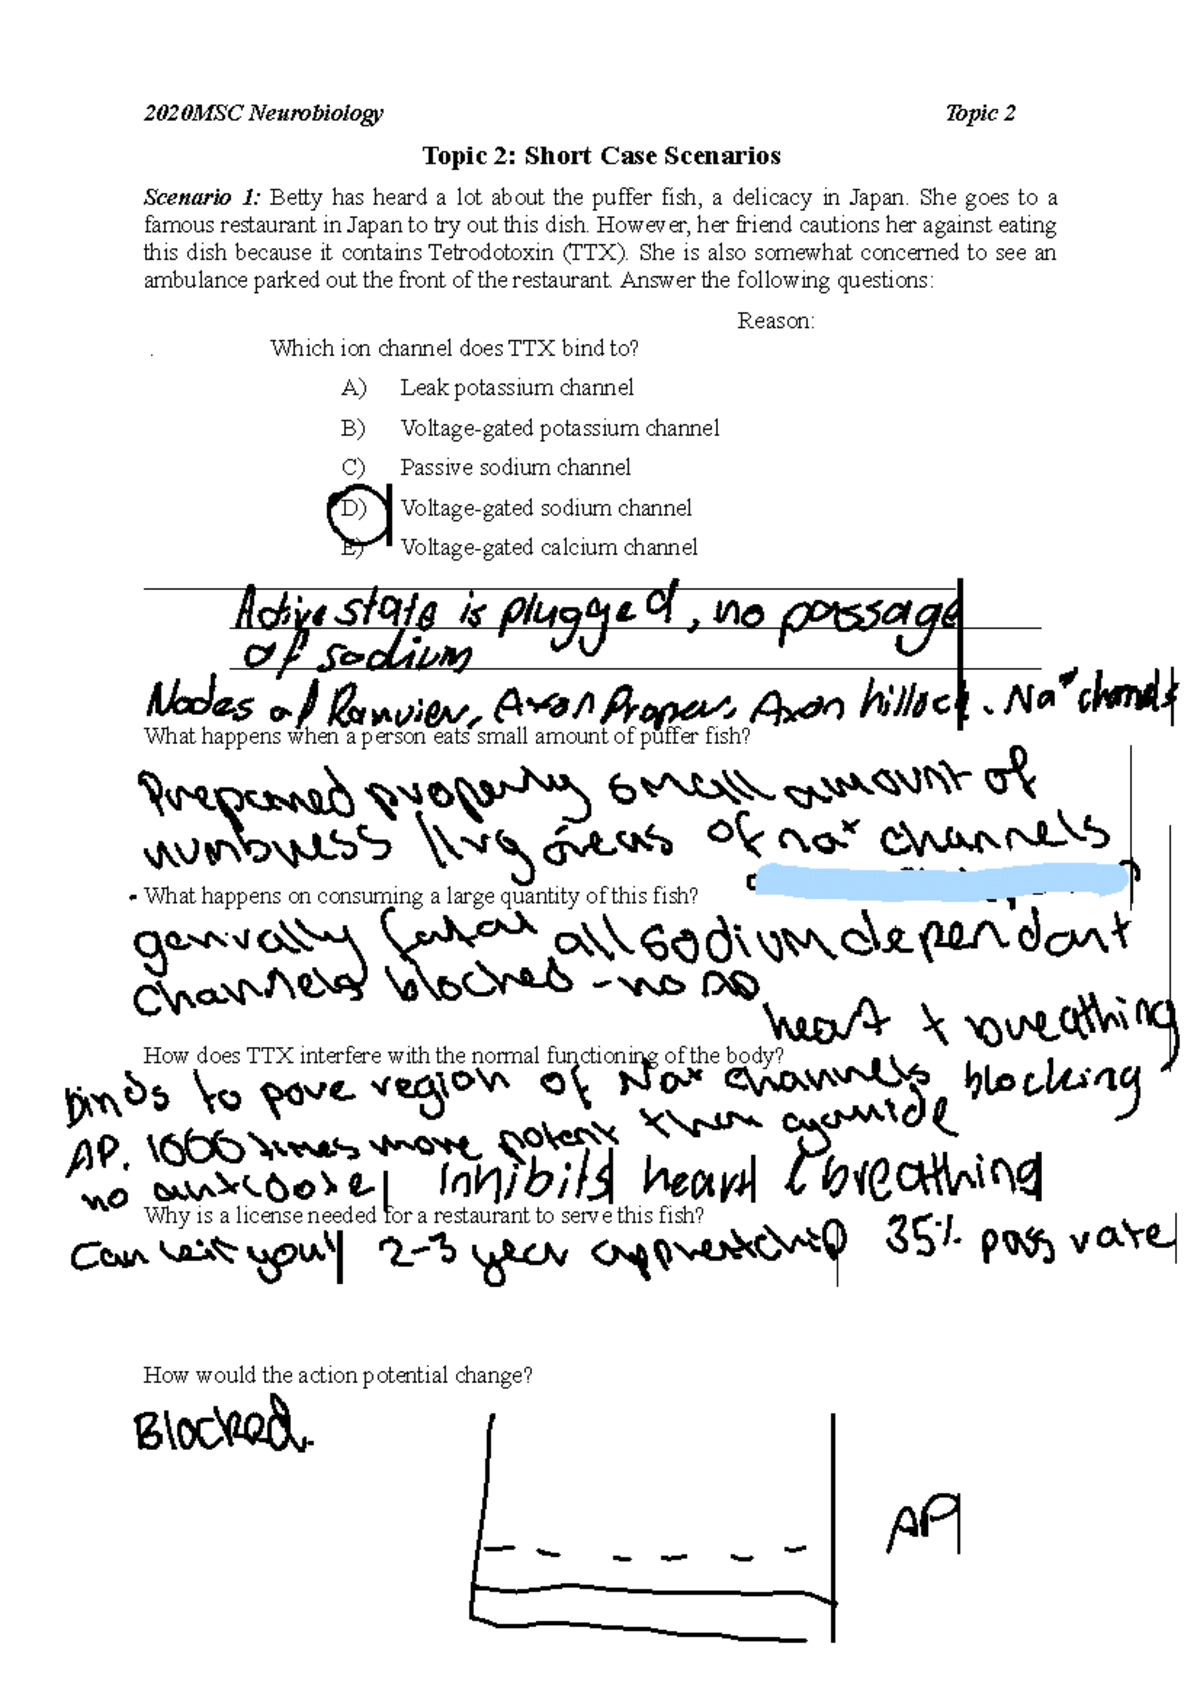 2020MSC Neurobiology Topic 2
Topic 2: Short Case Scenarios
Scenario 1: Betty has heard a lot about the puffer fish, a delicacy in Japan. She goes to a
famous restaurant in Japan to try out this dish. However, her friend cautions her against eating
this dish because it contains Tetrodotoxin (TTX). She is also somewhat concerned to see an
ambulance parked out the front of the restaurant. Answer the following questions:
Reason:
. Which ion channel does TTX bind to?
A) Leak potassium channel
B) Voltage-gated potassium channel
C) Passive sodium channel
D) Voltage-gated sodium channel
E) Voltage-gated calcium channel
Active state is plugged, no passage
of sodium
Nodes of Ranvier, Axon Propers, Axon hillock. Na+ channels
What happens when a person eats small amount of puffer fish?
Prepared properly small amount of
numbness of na+ channels
What happens on consuming a large quantity of this fish?
generally fatal all sodium dependant
channels blocked - no
heart + breathing
How does TTX interfere with the normal functioning of the body?
binds to pore region of Na+ channels blocking
AP. 1000 times more potent then cyanide
no antidote Inhibits heart & breathing
Why is a license needed for a restaurant to serve this fish?
Can you 2-3 year apprentichip 35% pass rate
How would the action potential change?
Blocked.
AP